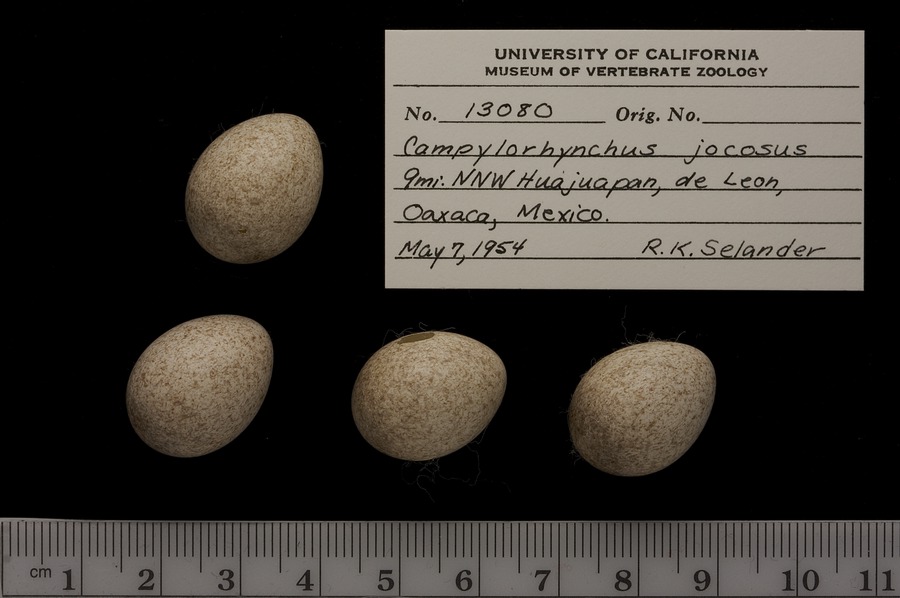 UNIVERSITY OF CALIFORNIA
MUSEUM OF VERTEBRATE ZOOLOGY
No. 13080 Orig. No.
Campylorhynchus jocosus
9mi. NNW Huajuapan, de Leon,
Oaxaca, Mexico.
May 7, 1954 R.K. Selander
cm 1 2 3 4 5 6 7 8 9 10 11